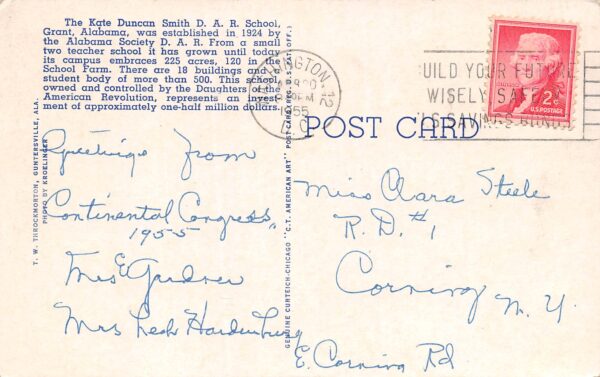 The Kate Duncan Smith D. A. R. School,
Grant, Alabama, was established in 1924 by
the Alabama Society D. A. R. From a small
two teacher school it has grown until today
its campus embraces 225 acres, 120 in the
School Farm. There are 18 buildings and
student body of more than 500. This school,
owned and controlled by the Daughters of the
American Revolution, represents an invest-
ment of approximately one-half million dollars.
T. W. THROCKMORTON, GUNTERSVILLE, ALA.
PHOTO BY KROELINGER
Greetings from
Continental Congress
1955
Mrs E Gardner
Mrs Hardenburg
GENUINE CURTEICH-CHICAGO "C.T. AMERICAN ART" POST CARD (REG. U.S. PAT. OFF.)
POST CARD
WASHINGTON
1955
D. C.
UILD YOUR FUTURE
WISELY SAFELY
U.S. SAVINGS BONDS
2¢
U.S. POSTAGE
Miss Clara Steele
R. D. #1
Corning
N. Y.
E. Corning Rd